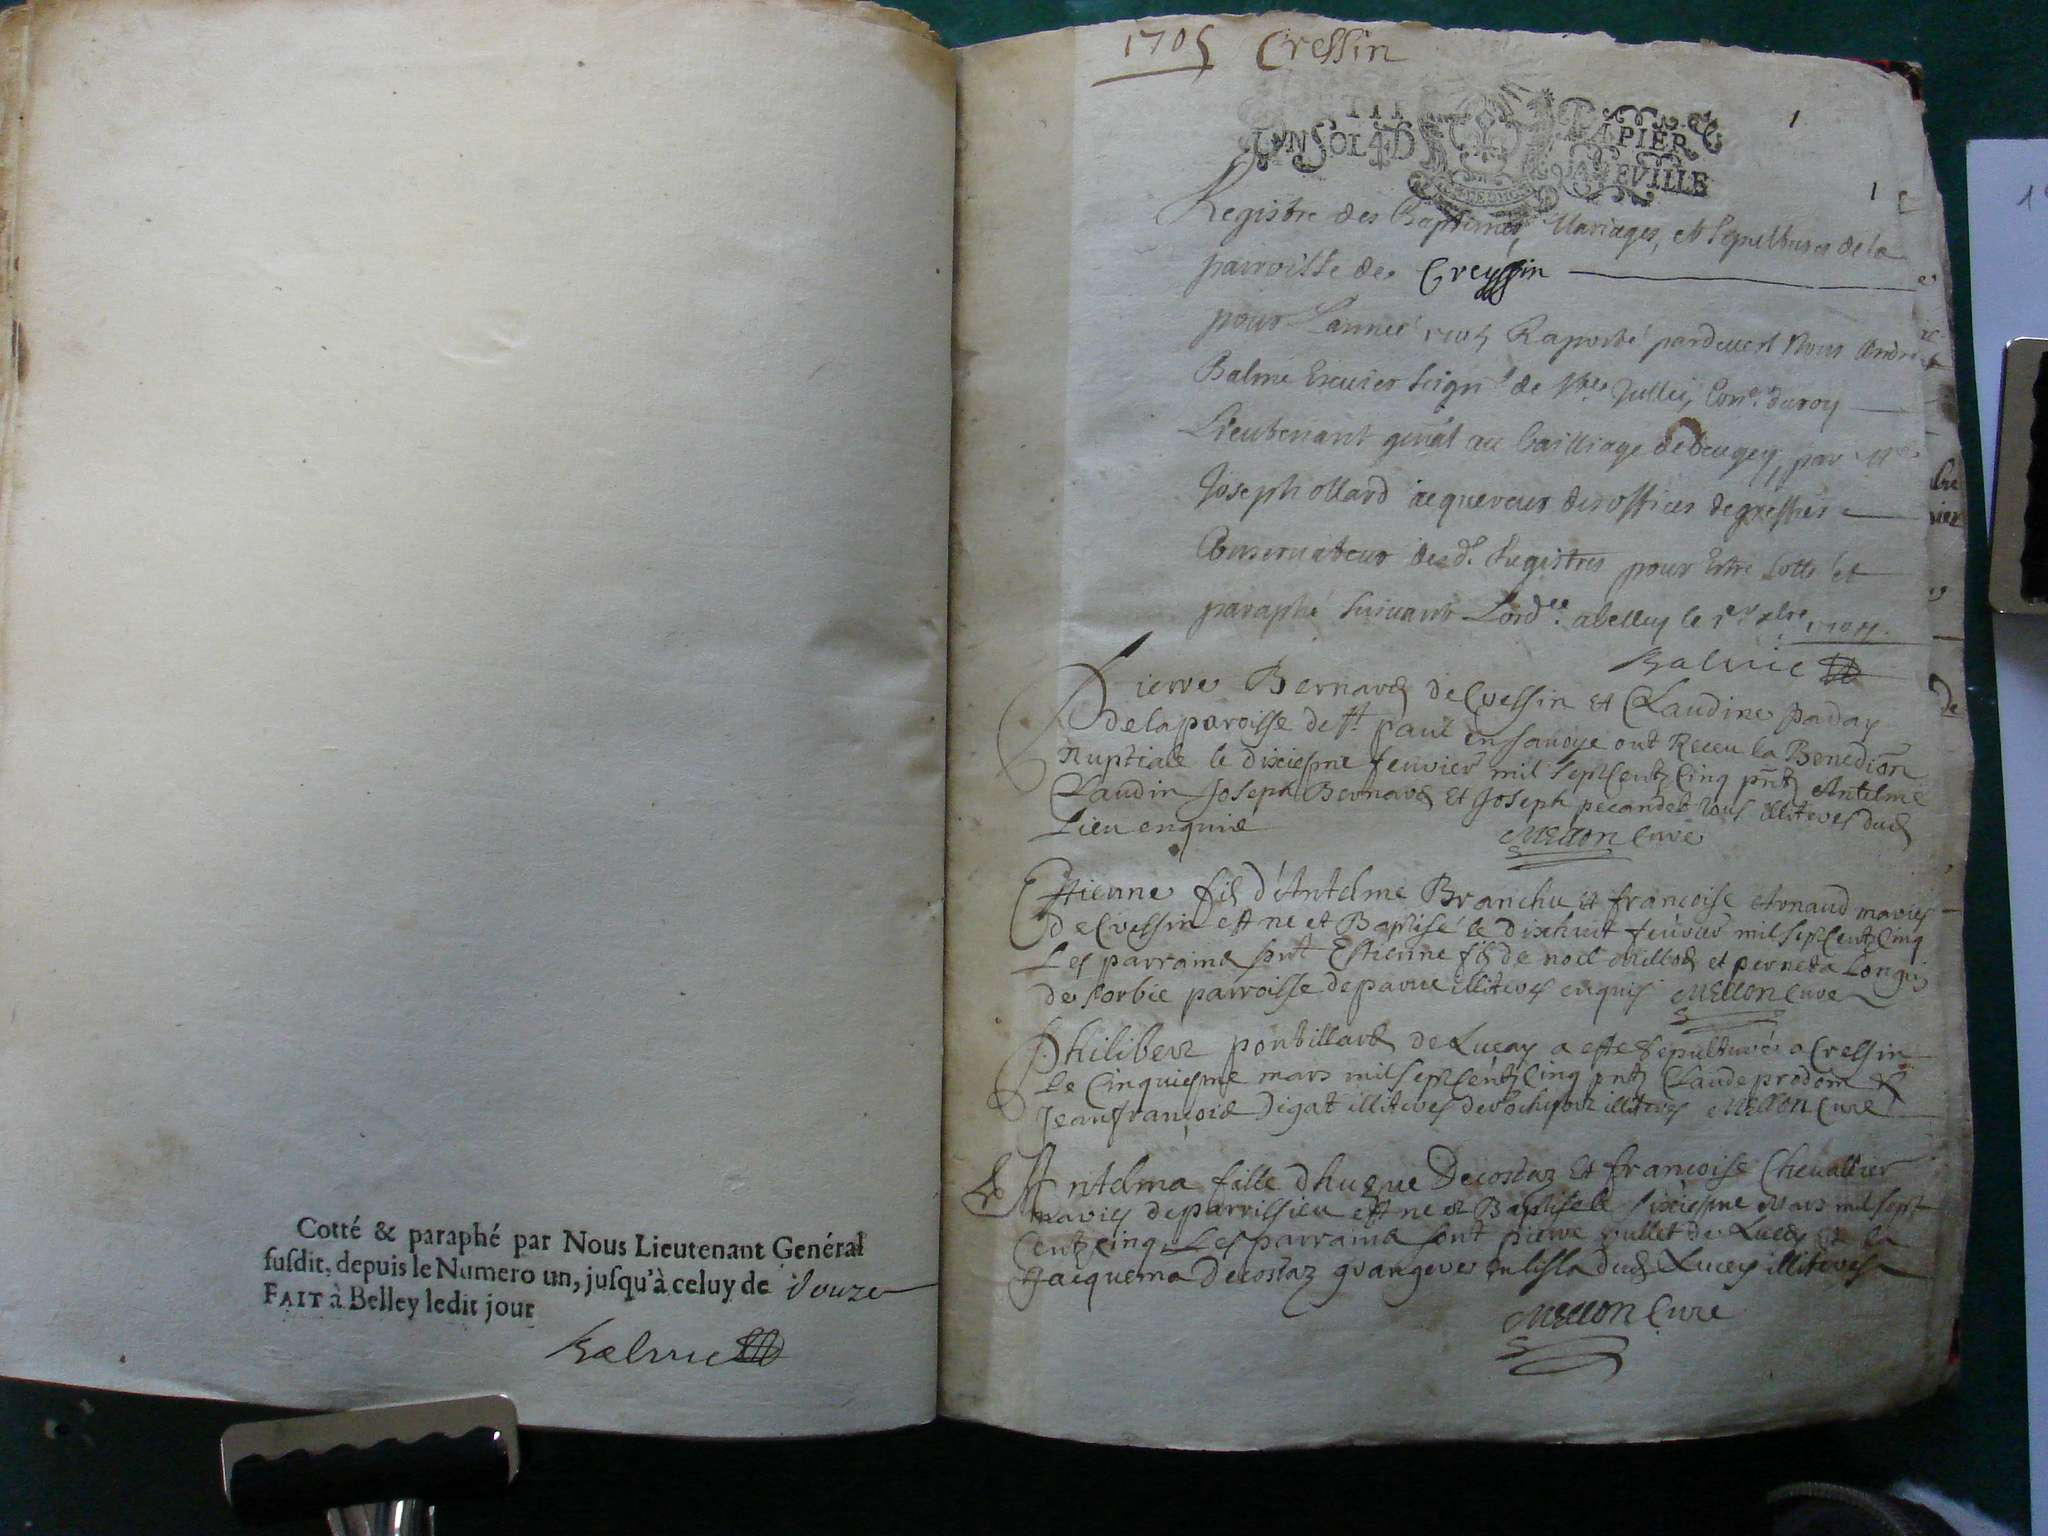 Cotté & paraphé par Nous Lieutenant Genéral
susdit, depuis le Numero un, jusqu'à celuy de douze
FAIT à Belley ledit jour
Balme
1705 Cressin
1
PETIT PAPIER
UN SOL 4 D LA FEUILLE
1
Registre des Baptemes, Mariages, et sepultures de la
parroisse de Creyssin
pour Lannee 1705 Raporté pardevant Nous André
Balme Escuier seigr de Ste Jullie, Conr. du roy
Lieutenant genal au bailliage debeugey, par Me
Joseph ollard acquereur des offices de greffier
Conservateur desd. Registres pour Estre Cotté et
paraphé suivant Lordce. a belley le 1er xbre 1704.
Balme
Pierre Bernard de Cressin et Claudine paday
de la paroisse de st. paul en savoye ont Receu la Benedion
Nuptiale le dixiesme fevrier mil sept Centz Cinq pntz Antelme
Claudin Joseph Bernard Et Joseph pecandet tous illiteres dud
Lieu enquis Mellon Cure
Estienne fils d'Antelme Branchu et francoise Arnaud maries
de Cressin est ne et Baptisé le dixhuit fevrier mil sept Centz Cinq
Les parrains sont Estienne fils de noel Millod et perneta Longin
de sorbie parroisse de parve illiteres enquis Mellon Cure
Philibert pontillard de Lucey a este sepulturé a Cressin
Le Cinquiesme mars mil sept Centz Cinq pntz Claude prodom &
Jean françois Digat illiteres de rochefort illiteres Mellon Cure
Antelma fille dhugue Decostaz Et francoise Chevallier
maries de parrissieu est ne et Baptise le sixiesme Mars mil sept
Centz Cinq Les parrains sont pierre Bullet de Lucey et
Jacquema Decostaz grangeres en lisla dud Lucey illiteres
Mellon Cure